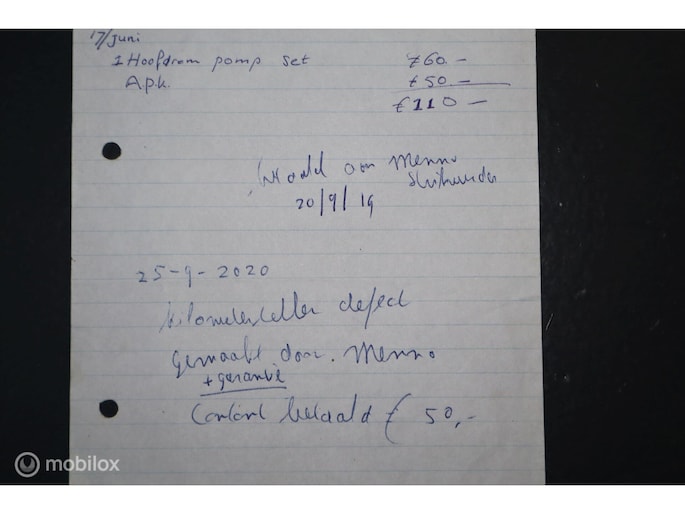 17/juni
1 Hoofdrem pomp set €60.-
A.p.k. €50.-
€110-
betaald aan Menno
20/9/19
25-9-2020
kilometerteller defect
gemaakt door Menno
+ garantie
Contant betaald € 50,-
mobilox